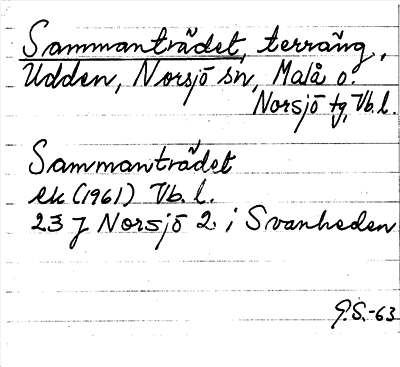 Sammanträdet, terräng,
Udden, Norsjö sn, Malå o.
Norsjö tg, Vb.l.
Sammanträdet
ek (1961) Vb.l.
23 J Norsjö 2 i Svanheden
G.S.-63